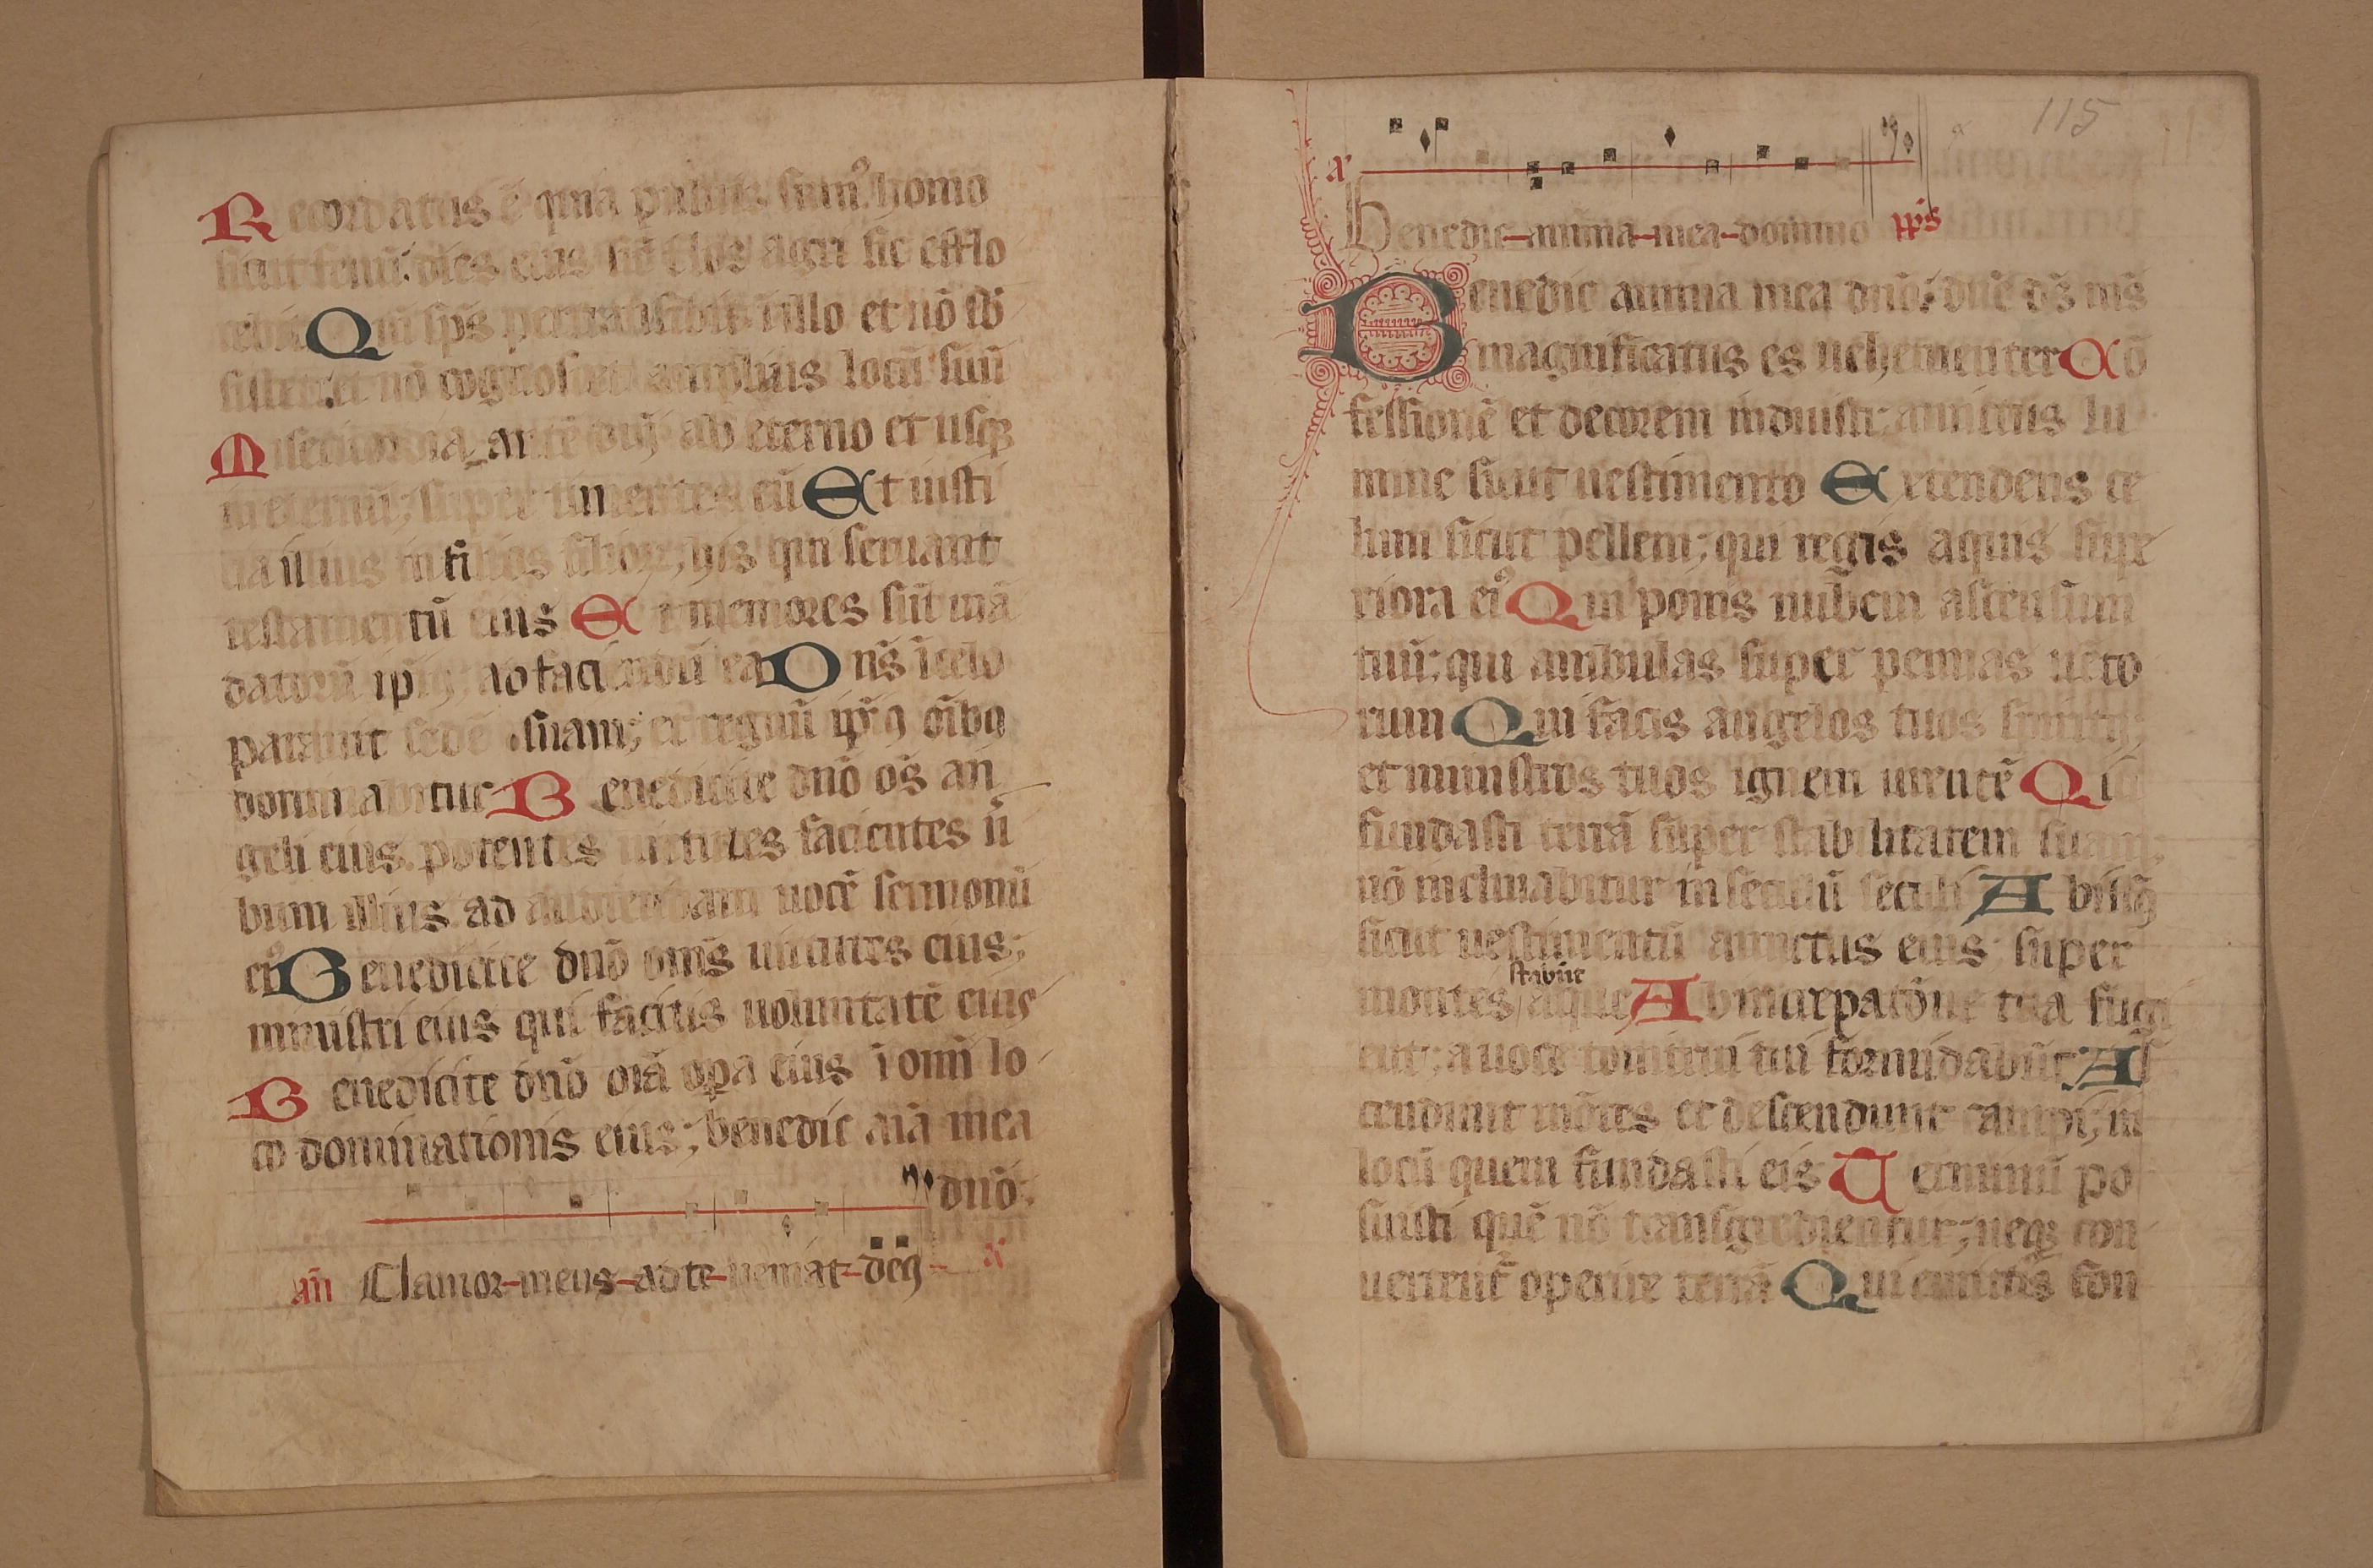 Recordatus ē quia puluis sumꝰ homo
sicut fenū dies eius sic̄ flos agri sic efflo
rebit Qm̄ sp̄s pertransibit ī illo et nō sb
sistet et nō cognoscet amplius locū suū
Misericordia autē dn̄i ab eterno et usqꝫ
in eternū; super timentes eū Et iusti
tia illius in filios filioꝝ; his qui seruant
testamentū eius Et memores sūt mā
datorū ipiꝰ; ad faciendū ea Dn̄s ī celo
parauit sedē suam; et regnū ipiꝰ oībꝰ
dominabitur Benedicite dn̄o om̄s an
geli eius potentes uirtutes facientes ū
bum illius ad audiendam uocē sermonū
eiꝰ Benedicite dn̄o om̄s uirtutes eius;
ministri eius qui facitis uoluntatē eius
Benedicite dn̄o oīa opa eius ī omī lo
co dominationis eius; benedic aīa mea
dn̄o.
an̄ Clamor meus ad te ueniat deꝰ
115
a
Benedic anima mea domino ps̄
Benedic anima mea dn̄o; dn̄e dꝫ ms̄
magnificatus es uehementer Cō
fessionē et decorem induisti; amictus lu
mine sicut uestimento Extendens ce
lum sicut pellem; qui tegis aquis supe
riora eiꝰ Qui ponis nubem ascensum
tuū; qui ambulas super pennas uēto
rum Qui facis angelos tuos spiritꝰ;
et ministros tuos ignem urentē Qui
fundasti terrā super stabilitatem suam
nō inclinabitur in seculū seculi Abissꝰ
sicut uestimentū amictus eius; super
montes stabūt aque Ab increpatōne tua fugi
ent; a uoce tonitrui tui formidabūt As
cendunt mōtes et descendunt campi; in
locū quem fundasti eis Terminū po
suisti quē nō transgredientur; neqꝫ con
uertent̄ operire terrā Qui emittis fon